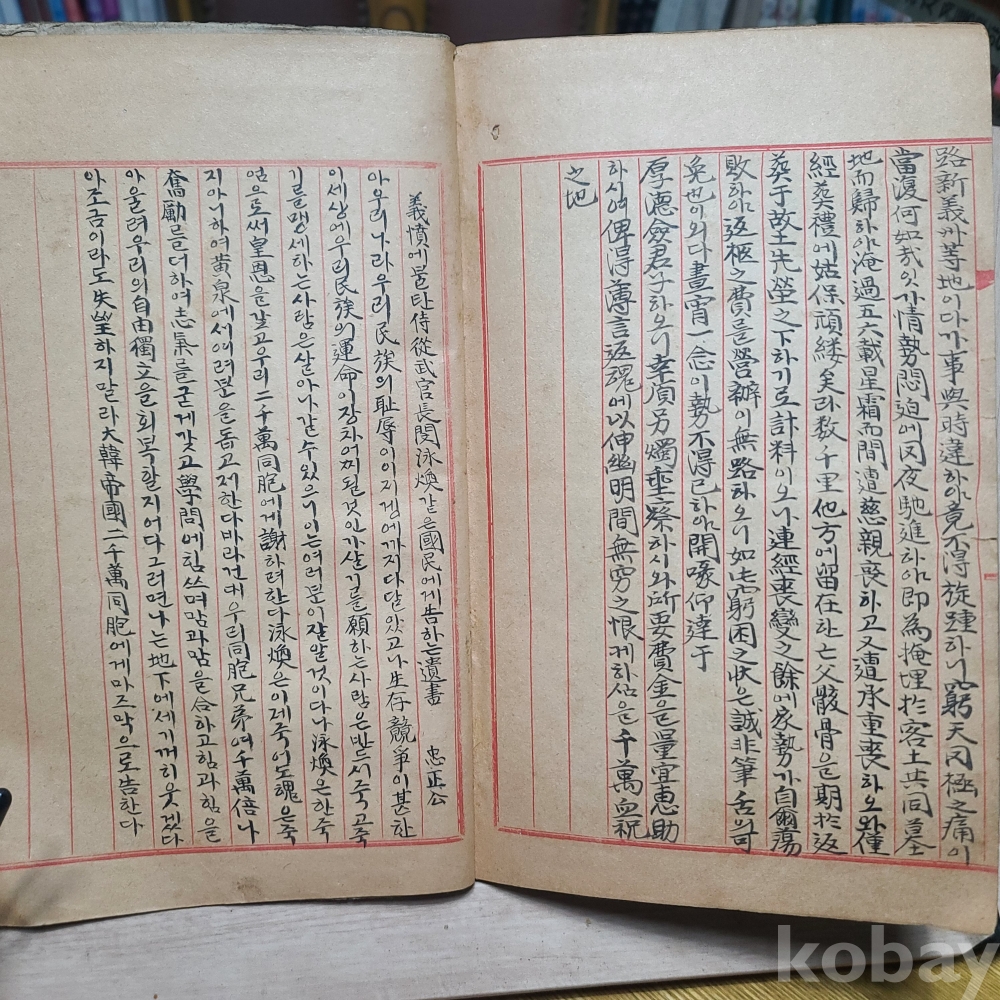 路新義州等地이다가事與時違하야竟不得旋踵하니窮天罔極之痛이
當復何如哉잇가情勢悶迫에罔夜馳進하야即為掩埋於客土共同墓
地而歸하야淹過五六載星霜而間遭慈親喪하고又遭承重喪하오와僅
經葬禮에姑保頑縷矣라數千里他方에留在한亡父骸骨을期於返
葬于故土先塋之下하기로計料이오나連經喪變之餘에家勢가自爾蕩
敗하야返柩之費를營辦이無路하오니如此窮困之狀은誠非筆舌의可
兔也이외다晝宵一念이勢不得已하야開喙仰達于
厚德僉君子하오니幸須另燭垂察하시와所要費金을量宜惠助
하시여俾得薄言返魂에以伸幽明間無窮之恨케하심을千萬血祝
之地
義憤에불탄侍從武官長閔泳煥같은國民에게告하는遺書 忠正公
아우리나라우리民族의恥辱이이지경에까지다달았고나生存競爭이甚한
이세상에우리民族의運命이장차어찌될것인가살기를願하는사람은반드시죽고죽
기를맹세하는사람은살아나갈수있으니이는여러분이잘알것이다나泳煥은한죽
엄으로써皇恩을갚고우리二千萬同胞에게謝하려한다泳煥은이제죽어도魂은죽
지아니하여黃泉에서여러분을돕고제한다바라건대우리同胞兄弟여千萬倍나
奮勵를더하여志氣를굳게갖고學問에힘쓰며맘과맘을合하고힘과힘을
아울려우리의自由獨立을회복할지어다그러면나는地下에서기꺼히웃겠다
아조금이라도失望하지말라大韓帝國二千萬同胞에게마즈막으로告한다
kobay